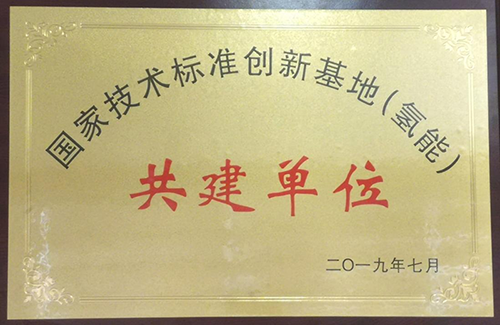 国家技术标准创新基地(氢能)
共建单位
二〇一九年七月